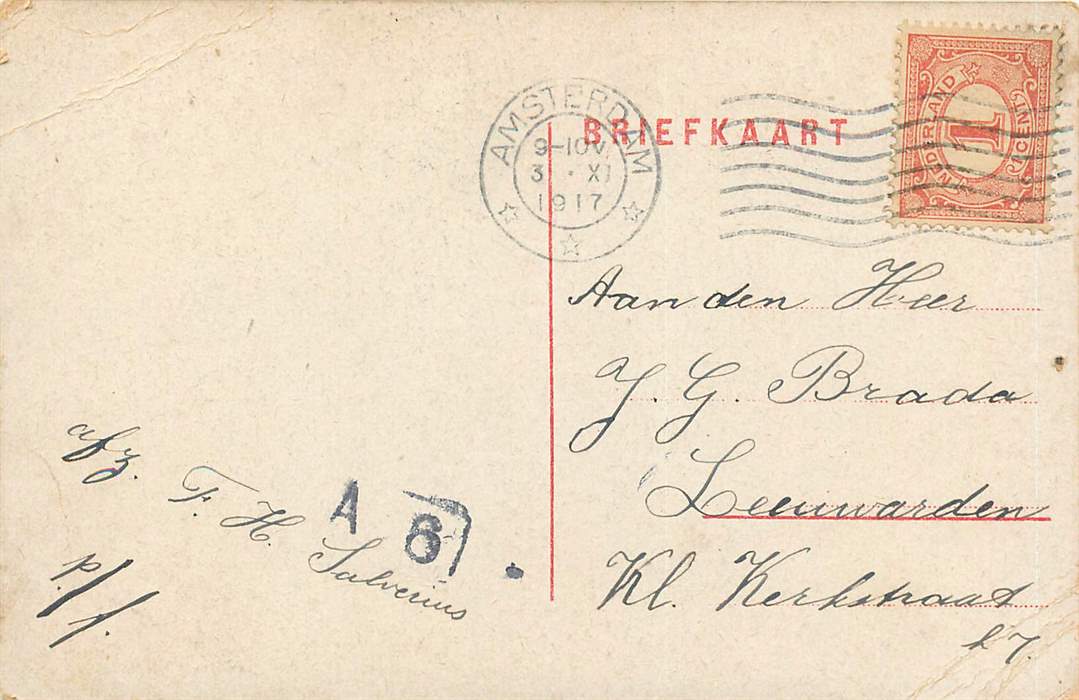 BRIEFKAART
AMSTERDAM
9-10 V.
3 · XI
1917
NEDERLAND
1
1 CENT
Aan den Heer
J. G. Brada
Leeuwarden
Kl. Kerkstraat
afz.
F. H. Salverius
A 6
p./f.